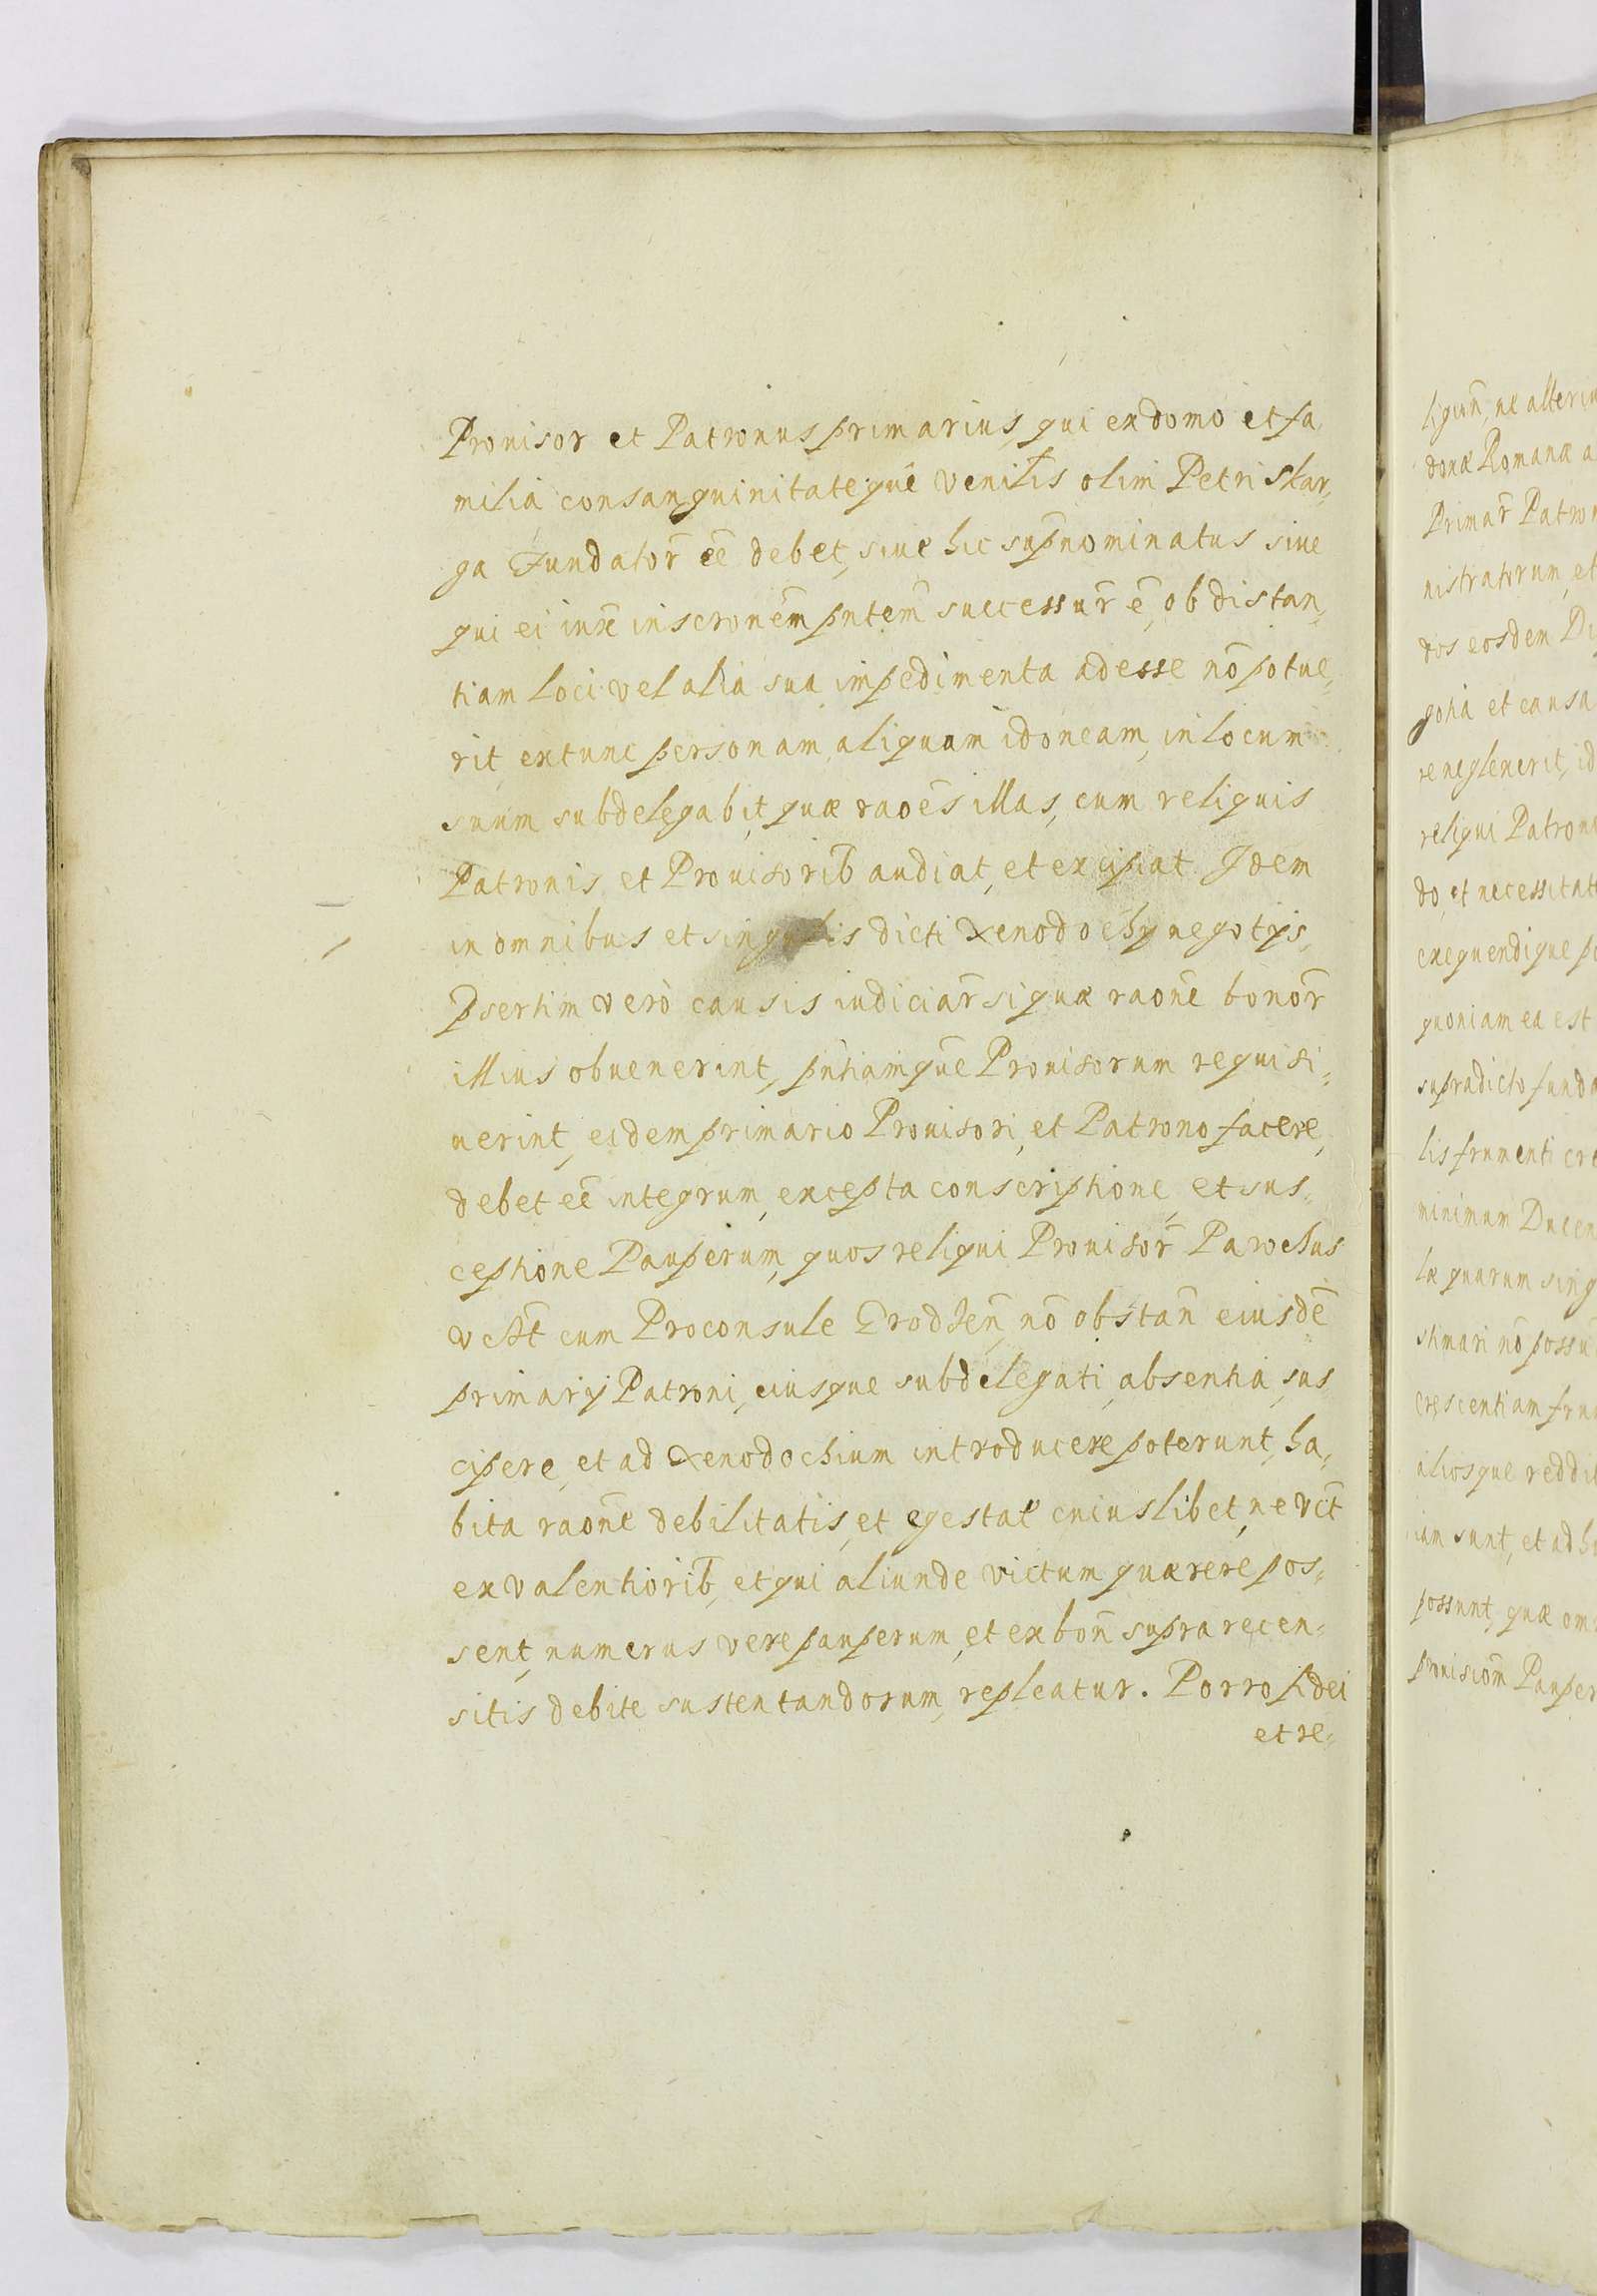 Prouisor et Patronus primarius, qui ex domo et fa„
milia consanguinitateq́ue Venil̃is olim Petri Skar„
ga Fundator̃ eẽ debet, siue hic sup̃nominatus siue
qui ei iux̃ inscronẽm pñtem successur̃ ẽ, ob distan„
tiam loci vel alia sua impedimenta adesse nõ potue„
rit, extunc personam aliquam idoneam, in locum
suum subdelegabit, quæ raoẽs illas, cum reliquis
Patronis et Prouisorib̃ audiat, et excipiat. Idem
in omnibus et singulis dicti Xenodochij negotijs,
P̃sertim verò causis iudiciar̃ si quæ raoñe bonor̃
illius obuenerint, pñtiamq́ue Prouisorum requisi„
uerint, eidem primario Prouisori, et Patrono facere,
debet eẽ integrum, excepta conscriptione, et sus„
ceptione Pauperum, quos reliqui Prouisor̃ Parochus
vct̃ cum Proconsule Grodzeñ, nõ obstañ eiusdẽ
primarij Patroni, eiusque subdelegati, absentia, sus
cipere, et ad Xenodochium introducere poterunt, ha„
bita raoñe debilitatis, et egestat̃ cuiuslibet, ne vct̃
ex valentiorib̃, et qui aliunde victum quærere pos„
sent, numerus vere pauperum, et ex boñ supra recen„
sitis debite sustentandorum, repleatur. Porro fidei
et re„
ligioñ, ne alteriu
donæ Romanæ a
Primar̃ Patron
nistratorum, et
dos eosdem
gotia et causa
re neglexerit, id
reliqui Patroni
do, et necessitat
exequendique po
quoniam ea est
supradicto funda
lis frumenti cre
minimum Ducen
læ quarum sing
stimari nõ possu
crescentiam fru
aliosque reddit
iam sunt, et ad h
possunt, quæ om
prouisiom̃ Pauper